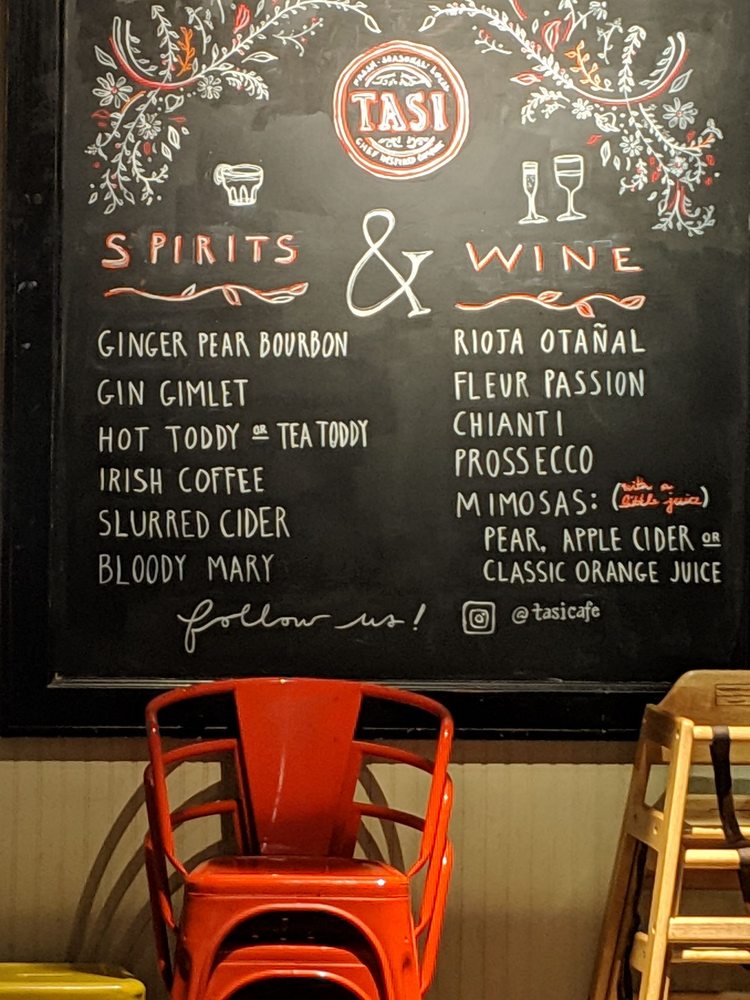 FRESH · SEASONAL · LOCAL
TASI
CHEF INSPIRED
SPIRITS & WINE
GINGER PEAR BOURBON
GIN GIMLET
HOT TODDY OR TEA TODDY
IRISH COFFEE
SLURRED CIDER
BLOODY MARY
RIOJA OTAÑAL
FLEUR PASSION
CHIANTI
PROSSECCO
MIMOSAS: (with a little juice)
PEAR, APPLE CIDER OR
CLASSIC ORANGE JUICE
follow us! @tasicafe